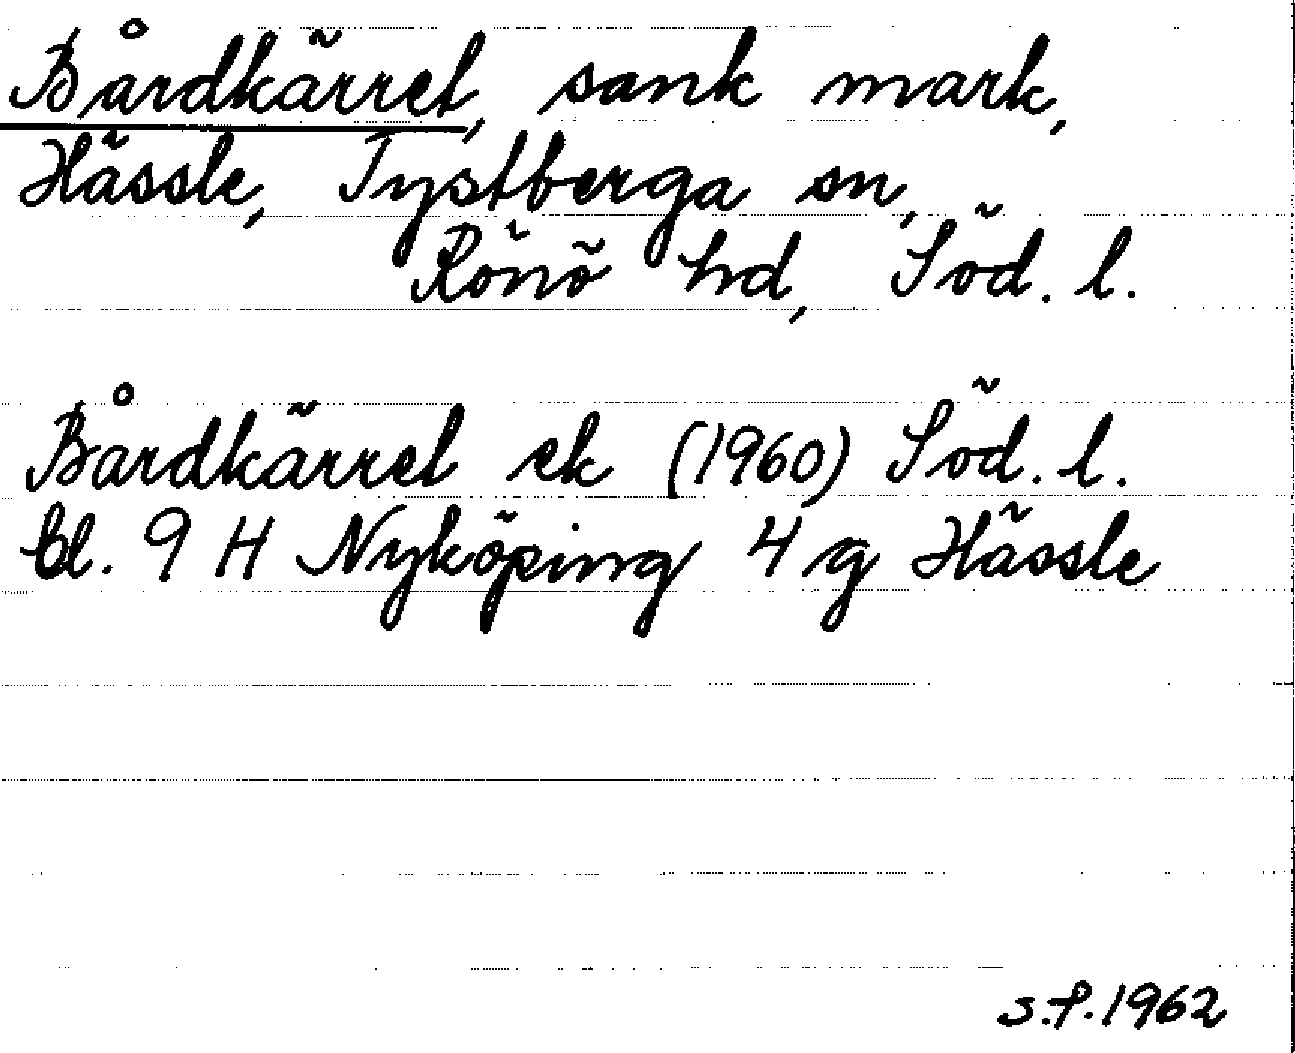 Bårdkärret, sank mark,
Hässle, Tystberga sn,
Rönö hd, Söd. l.
Bårdkärret ek (1960) Söd. l.
bl. 9 H Nyköping 4 g Hässle
S.P. 1962